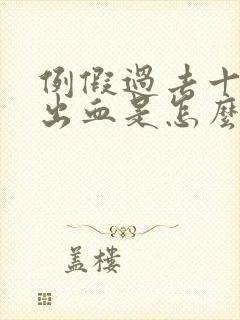 例假過去十
出血是怎麼
蓋樓